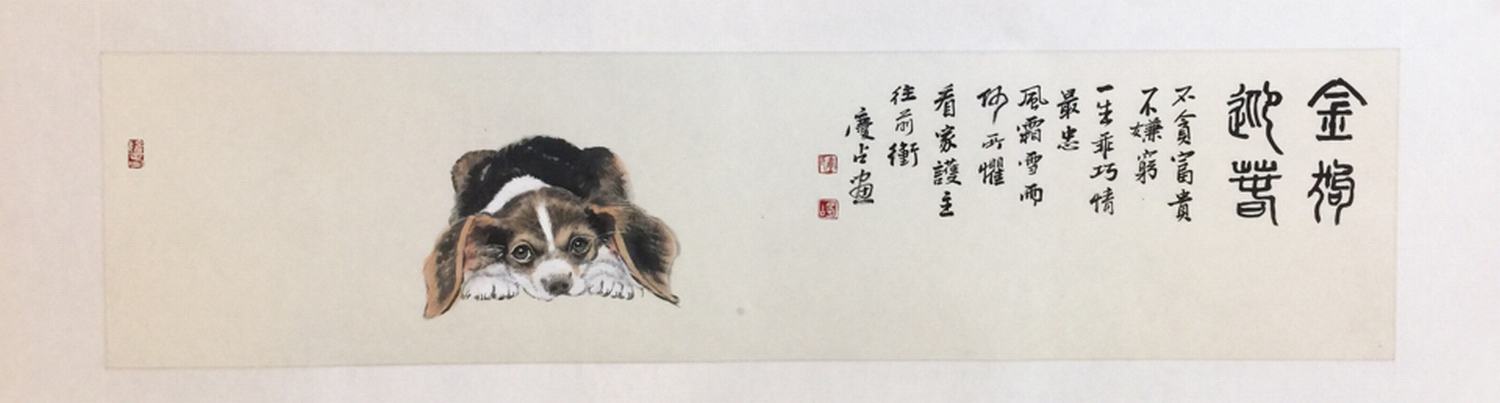 金狗
迎春
不貪富貴
不嫌窮
一生乖巧情
最忠
風霜雪雨
何所懼
看家護主
往前衝
慶占畫